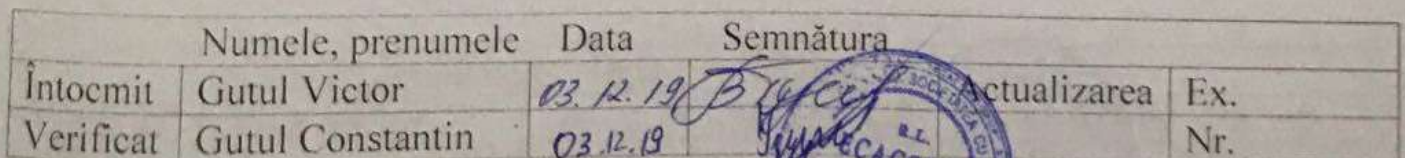 Numele, prenumele Data Semnătura
Întocmit Gutul Victor 03.12.19 Actualizarea Ex.
Verificat Gutul Constantin 03.12.19 Nr.
SOCIETATEA CU